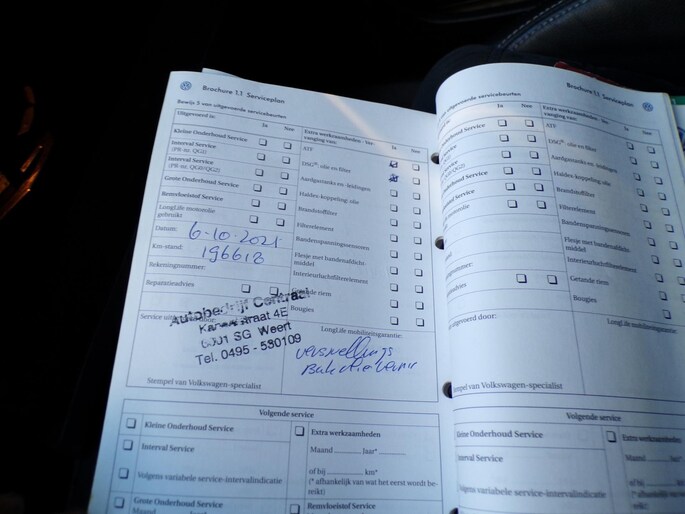 Brochure 1.1 Serviceplan
Bewijs 5 van uitgevoerde servicebeurten
Uitgevoerd is: Ja Nee
Kleine Onderhoud Service
Interval Service
(PR-nr. QG1)
Interval Service
(PR-nr. QG0/QG2)
Grote Onderhoud Service
Remvloeistof Service
LongLife motorolie
gebruikt
Datum: 6-10-2021
Km-stand: 196618
Rekeningnummer:
Reparatieadvies
Autobedrijf Centraal
straat 4E
6001 SG Weert
Tel. 0495 - 530109
Stempel van Volkswagen-specialist
Extra werkzaamheden - Ver-
vanging van: Ja Nee
ATF
DSG®- olie en filter
Aardgastanks en -leidingen
Haldex-koppeling: olie
Brandstoffilter
Filterelement
Bandenspanningssensoren
Flesje met bandenafdicht-
middel
Interieurluchtfilterelement
Getande riem
Bougies
LongLife mobiliteitsgarantie:
Volgende service
Kleine Onderhoud Service
Interval Service
Volgens variabele service-intervalindicatie
Grote Onderhoud Service
Extra werkzaamheden
Maand Jaar*
of bij km*
(* afhankelijk van wat het eerst wordt be-
reikt)
Remvloeistof Service
Brochure 1.1 Serviceplan
uitgevoerde servicebeurten
Ja Nee
Onderhoud Service
Service
Service
Onderhoud Service
Service
Extra werkzaamheden - Ver-
vanging van:
ATF
DSG®- olie en filter
Aardgastanks en -leidingen
Haldex-koppeling: olie
Brandstoffilter
Filterelement
Bandenspanningssensoren
Flesje met bandenafdicht-
middel
Interieurluchtfilterelement
Getande riem
Bougies
LongLife
uitgevoerd door:
Stempel van Volkswagen-specialist
Volgende service
Kleine Onderhoud Service
Interval Service
Volgens variabele service-intervalindicatie
Grote Onderhoud Service
Extra werkzaamheden
Maand
of bij
(* afhankelijk van
reikt)
Remvloeistof